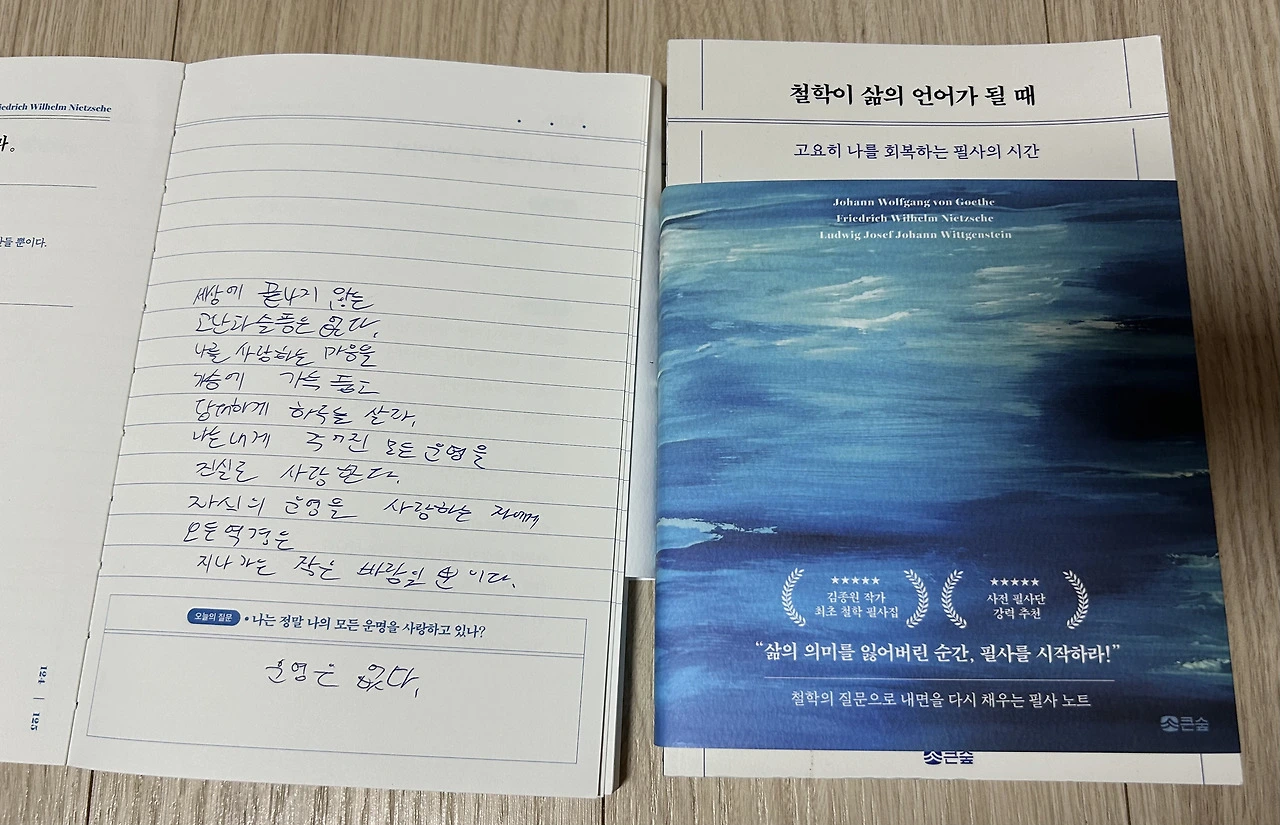 iedrich Wilhelm Nietzsche
다。
들 뿐이다.
세상에 끝나지 않는
고난과 슬픔은 없다.
나를 사랑하는 마음을
가슴에 가득 품고
당당하게 하루를 살라.
나는 내게 주어진 모든 운명을
진실로 사랑한다.
자신의 운명을 사랑하는 자에게
모든 역경은
지나가는 작은 바람일 뿐이다.
오늘의 질문 • 나는 정말 나의 모든 운명을 사랑하고 있나?
운명은 없다.
124 | 125
철학이 삶의 언어가 될 때
고요히 나를 회복하는 필사의 시간
Johann Wolfgang von Goethe
Friedrich Wilhelm Nietzsche
Ludwig Josef Johann Wittgenstein
★★★★★
김종원 작가
최초 철학 필사집
★★★★★
사전 필사단
강력 추천
“삶의 의미를 잃어버린 순간, 필사를 시작하라!”
철학의 질문으로 내면을 다시 채우는 필사 노트
큰숲
큰숲